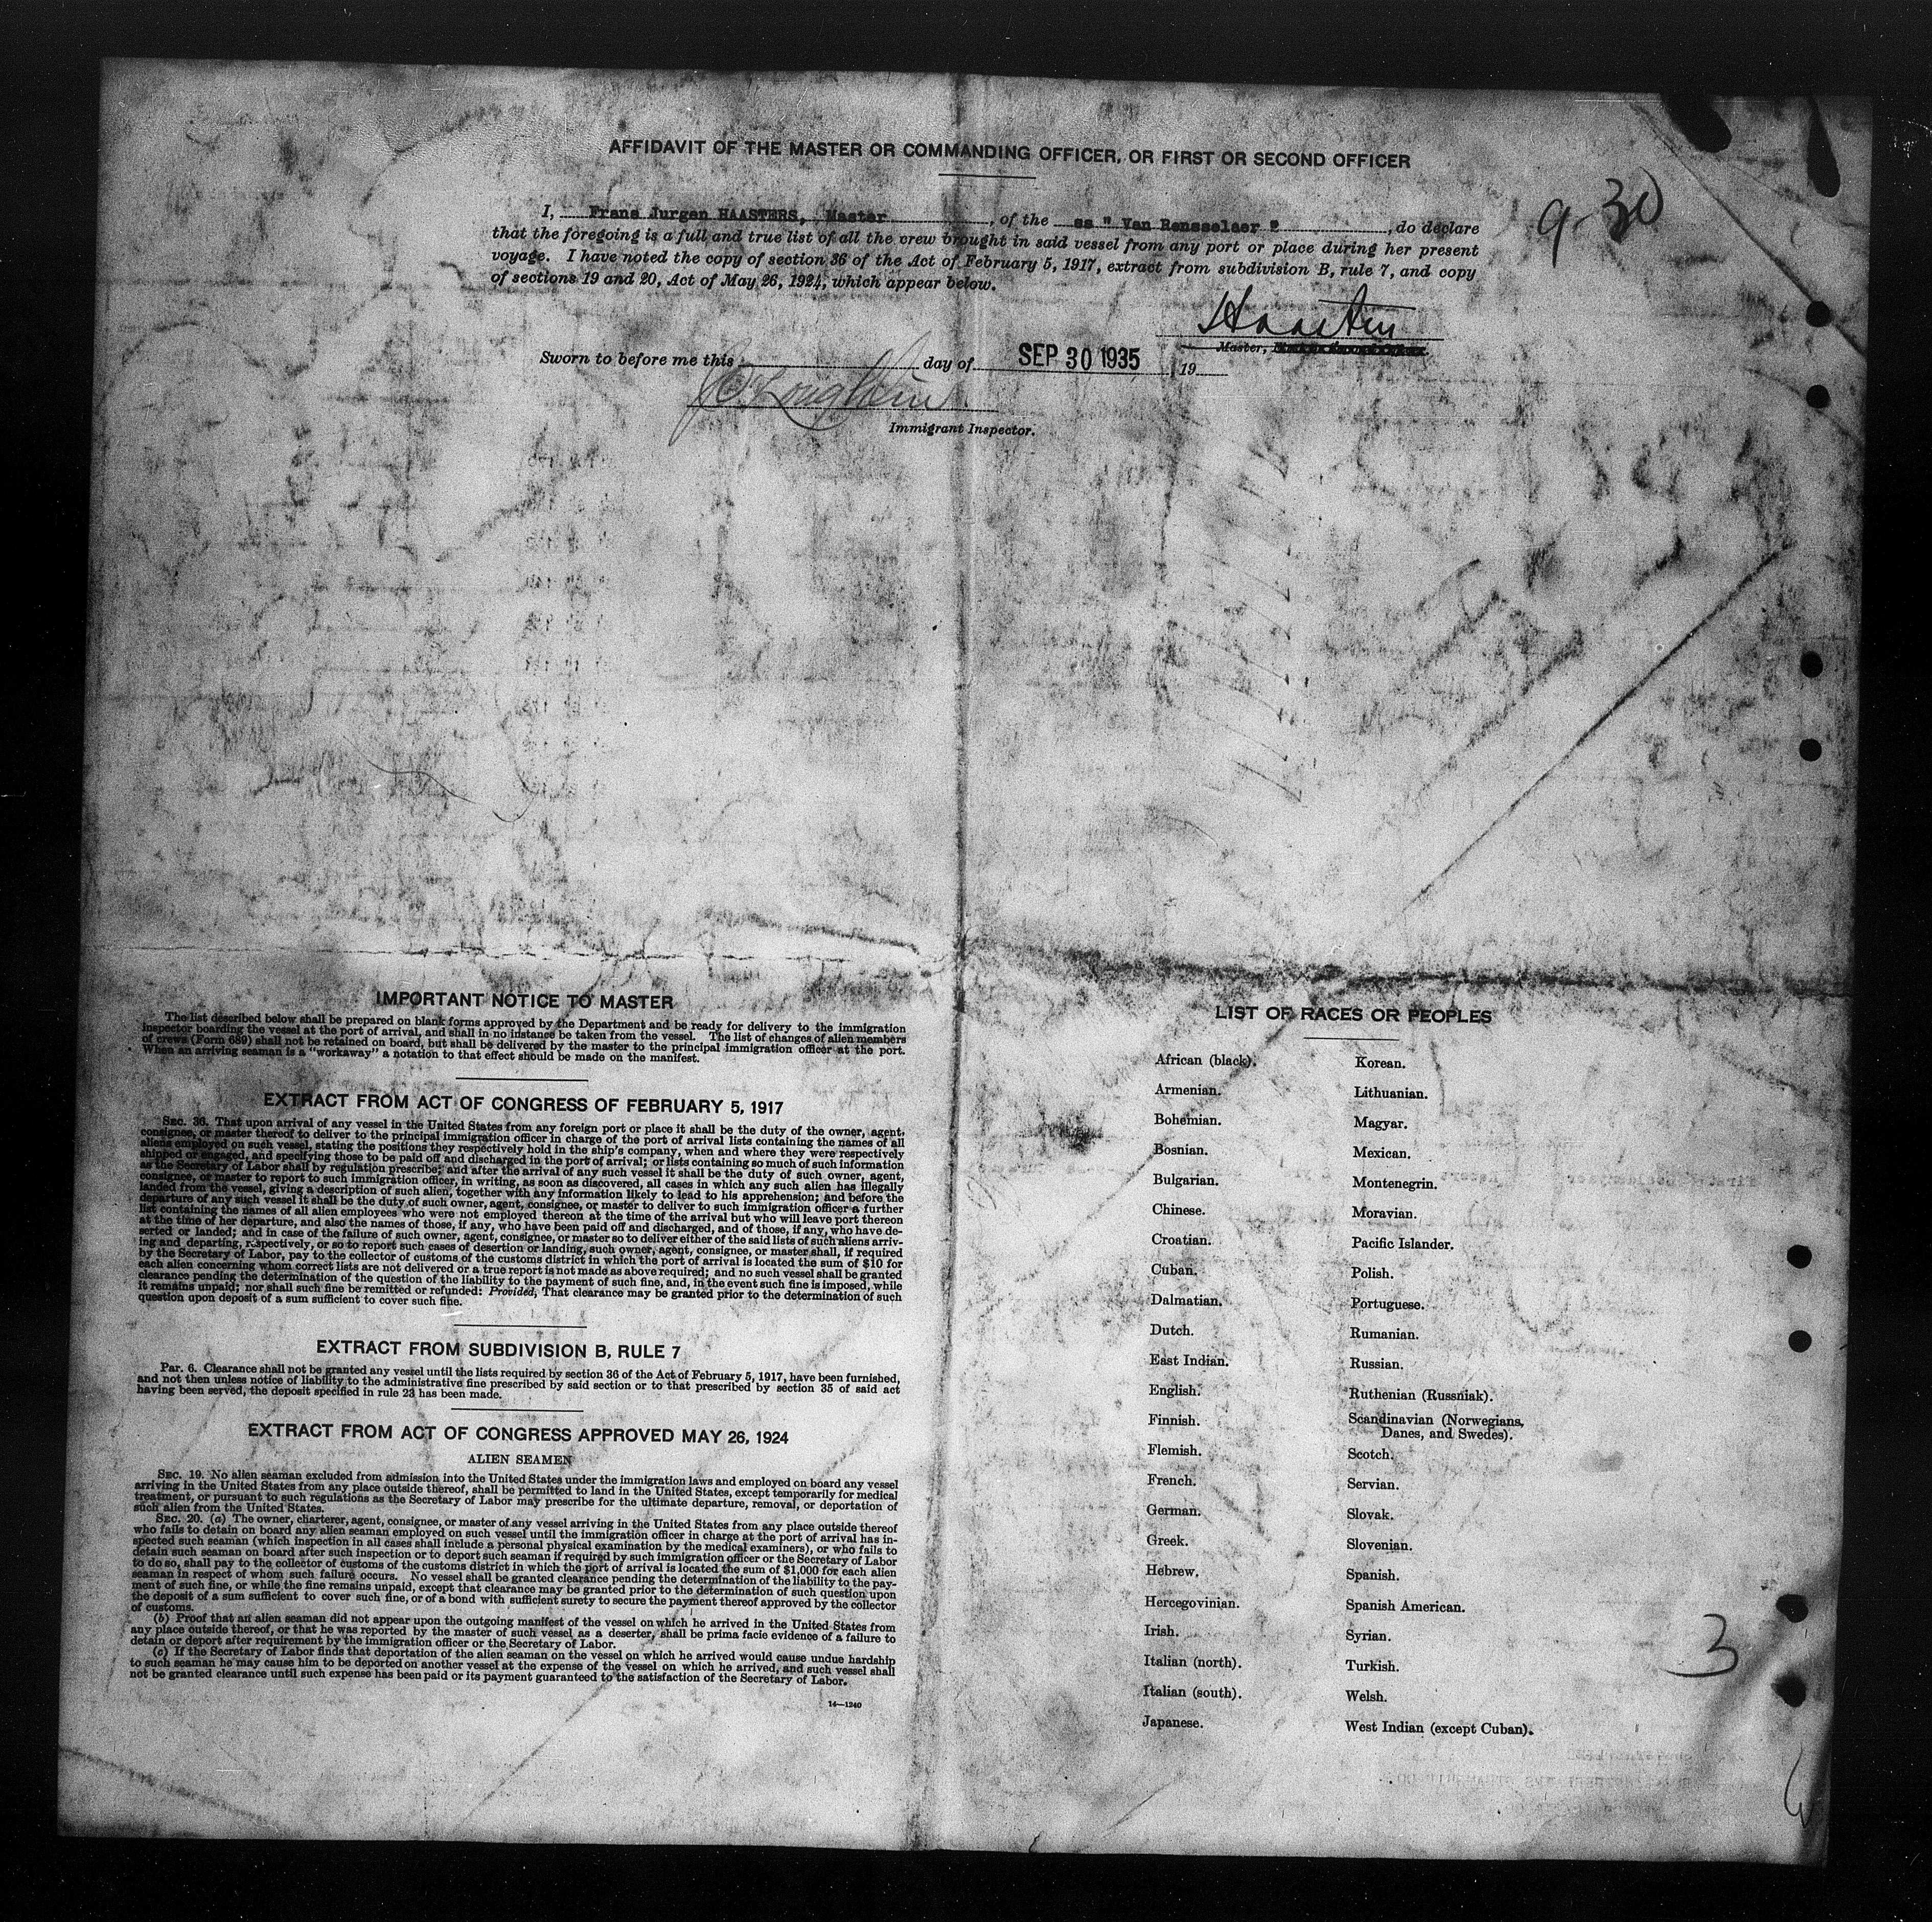 AFFIDAVIT OF THE MASTER OR COMMANDING OFFICER, OR FIRST OR SECOND OFFICER
9-30
I, Frans Jurgen HAASTERS, Master, of the ss " Van Rensselaer ", do declare
that the foregoing is a full and true list of all the crew brought in said vessel from any port or place during her present
voyage. I have noted the copy of section 36 of the Act of February 5, 1917, extract from subdivision B, rule 7, and copy
of sections 19 and 20, Act of May 26, 1924, which appear below.
Haasters
Master,
Sworn to before me this day of SEP 30 1935, 19
Immigrant Inspector.
IMPORTANT NOTICE TO MASTER
The list described below shall be prepared on blank forms approved by the Department and be ready for delivery to the immigration
inspector boarding the vessel at the port of arrival, and shall in no instance be taken from the vessel. The list of changes of alien members
of crews (Form 689) shall not be retained on board, but shall be delivered by the master to the principal immigration officer at the port.
When an arriving seaman is a "workaway" a notation to that effect should be made on the manifest.
EXTRACT FROM ACT OF CONGRESS OF FEBRUARY 5, 1917
SEC. 36. That upon arrival of any vessel in the United States from any foreign port or place it shall be the duty of the owner, agent,
consignee, or master thereof to deliver to the principal immigration officer in charge of the port of arrival lists containing the names of all
aliens employed on such vessel, stating the positions they respectively hold in the ship's company, when and where they were respectively
shipped or engaged, and specifying those to be paid off and discharged in the port of arrival; or lists containing so much of such information
as the Secretary of Labor shall by regulation prescribe; and after the arrival of any such vessel it shall be the duty of such owner, agent,
consignee, or master to report to such immigration officer, in writing, as soon as discovered, all cases in which any such alien has illegally
landed from the vessel, giving a description of such alien, together with any information likely to lead to his apprehension; and before the
departure of any such vessel it shall be the duty of such owner, agent, consignee, or master to deliver to such immigration officer a further
list containing the names of all alien employees who were not employed thereon at the time of the arrival but who will leave port thereon
at the time of her departure, and also the names of those, if any, who have been paid off and discharged, and of those, if any, who have de-
serted or landed; and in case of the failure of such owner, agent, consignee, or master so to deliver either of the said lists of such aliens arriv-
ing and departing, respectively, or so to report such cases of desertion or landing, such owner, agent, consignee, or master shall, if required
by the Secretary of Labor, pay to the collector of customs of the customs district in which the port of arrival is located the sum of $10 for
each alien concerning whom correct lists are not delivered or a true report is not made as above required; and no such vessel shall be granted
clearance pending the determination of the question of the liability to the payment of such fine, and, in the event such fine is imposed, while
it remains unpaid; nor shall such fine be remitted or refunded: Provided, That clearance may be granted prior to the determination of such
question upon deposit of a sum sufficient to cover such fine.
EXTRACT FROM SUBDIVISION B, RULE 7
Par. 6. Clearance shall not be granted any vessel until the lists required by section 36 of the Act of February 5, 1917, have been furnished,
and not then unless notice of liability to the administrative fine prescribed by said section or to that prescribed by section 35 of said act
having been served, the deposit specified in rule 23 has been made.
EXTRACT FROM ACT OF CONGRESS APPROVED MAY 26, 1924
ALIEN SEAMEN
SEC. 19. No alien seaman excluded from admission into the United States under the immigration laws and employed on board any vessel
arriving in the United States from any place outside thereof, shall be permitted to land in the United States, except temporarily for medical
treatment, or pursuant to such regulations as the Secretary of Labor may prescribe for the ultimate departure, removal, or deportation of
such alien from the United States.
SEC. 20. (a) The owner, charterer, agent, consignee, or master of any vessel arriving in the United States from any place outside thereof
who fails to detain on board any alien seaman employed on such vessel until the immigration officer in charge at the port of arrival has in-
spected such seaman (which inspection in all cases shall include a personal physical examination by the medical examiners), or who fails to
detain such seaman on board after such inspection or to deport such seaman if required by such immigration officer or the Secretary of Labor
to do so, shall pay to the collector of customs of the customs district in which the port of arrival is located the sum of $1,000 for each alien
seaman in respect of whom such failure occurs. No vessel shall be granted clearance pending the determination of the liability to the pay-
ment of such fine, or while the fine remains unpaid, except that clearance may be granted prior to the determination of such question upon
the deposit of a sum sufficient to cover such fine, or of a bond with sufficient surety to secure the payment thereof approved by the collector
of customs.
(b) Proof that an alien seaman did not appear upon the outgoing manifest of the vessel on which he arrived in the United States from
any place outside thereof, or that he was reported by the master of such vessel as a deserter, shall be prima facie evidence of a failure to
detain or deport after requirement by the immigration officer or the Secretary of Labor.
(c) If the Secretary of Labor finds that deportation of the alien seaman on the vessel on which he arrived would cause undue hardship
to such seaman he may cause him to be deported on another vessel at the expense of the vessel on which he arrived, and such vessel shall
not be granted clearance until such expense has been paid or its payment guaranteed to the satisfaction of the Secretary of Labor.
14—1240
LIST OF RACES OR PEOPLES
African (black).
Armenian.
Bohemian.
Bosnian.
Bulgarian.
Chinese.
Croatian.
Cuban.
Dalmatian.
Dutch.
East Indian.
English.
Finnish.
Flemish.
French.
German.
Greek.
Hebrew.
Hercegovinian.
Irish.
Italian (north).
Italian (south).
Japanese.
Korean.
Lithuanian.
Magyar.
Mexican.
Montenegrin.
Moravian.
Pacific Islander.
Polish.
Portuguese.
Rumanian.
Russian.
Ruthenian (Russniak).
Scandinavian (Norwegians,
Danes, and Swedes).
Scotch.
Servian.
Slovak.
Slovenian.
Spanish.
Spanish American.
Syrian.
Turkish.
Welsh.
West Indian (except Cuban).
3